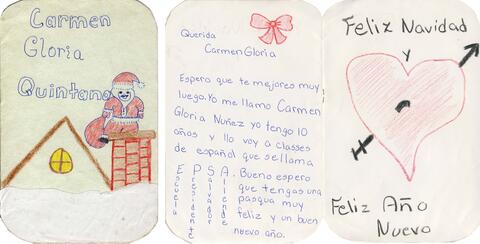 Carmen
Gloria
Quintano
Querida
Carmen Gloria
Espero que te mejores muy
luego. Yo me llamo Carmen
Gloria Nuñez yo tengo 10
años y llo voy a classes
de español que se llama
E P S A. Bueno espero
que tengas una
pasqua muy
feliz y un buen
nuevo año.
Escuela
Presidente
Salvador
Allende
Feliz Navidad
y
Feliz Año
Nuevo